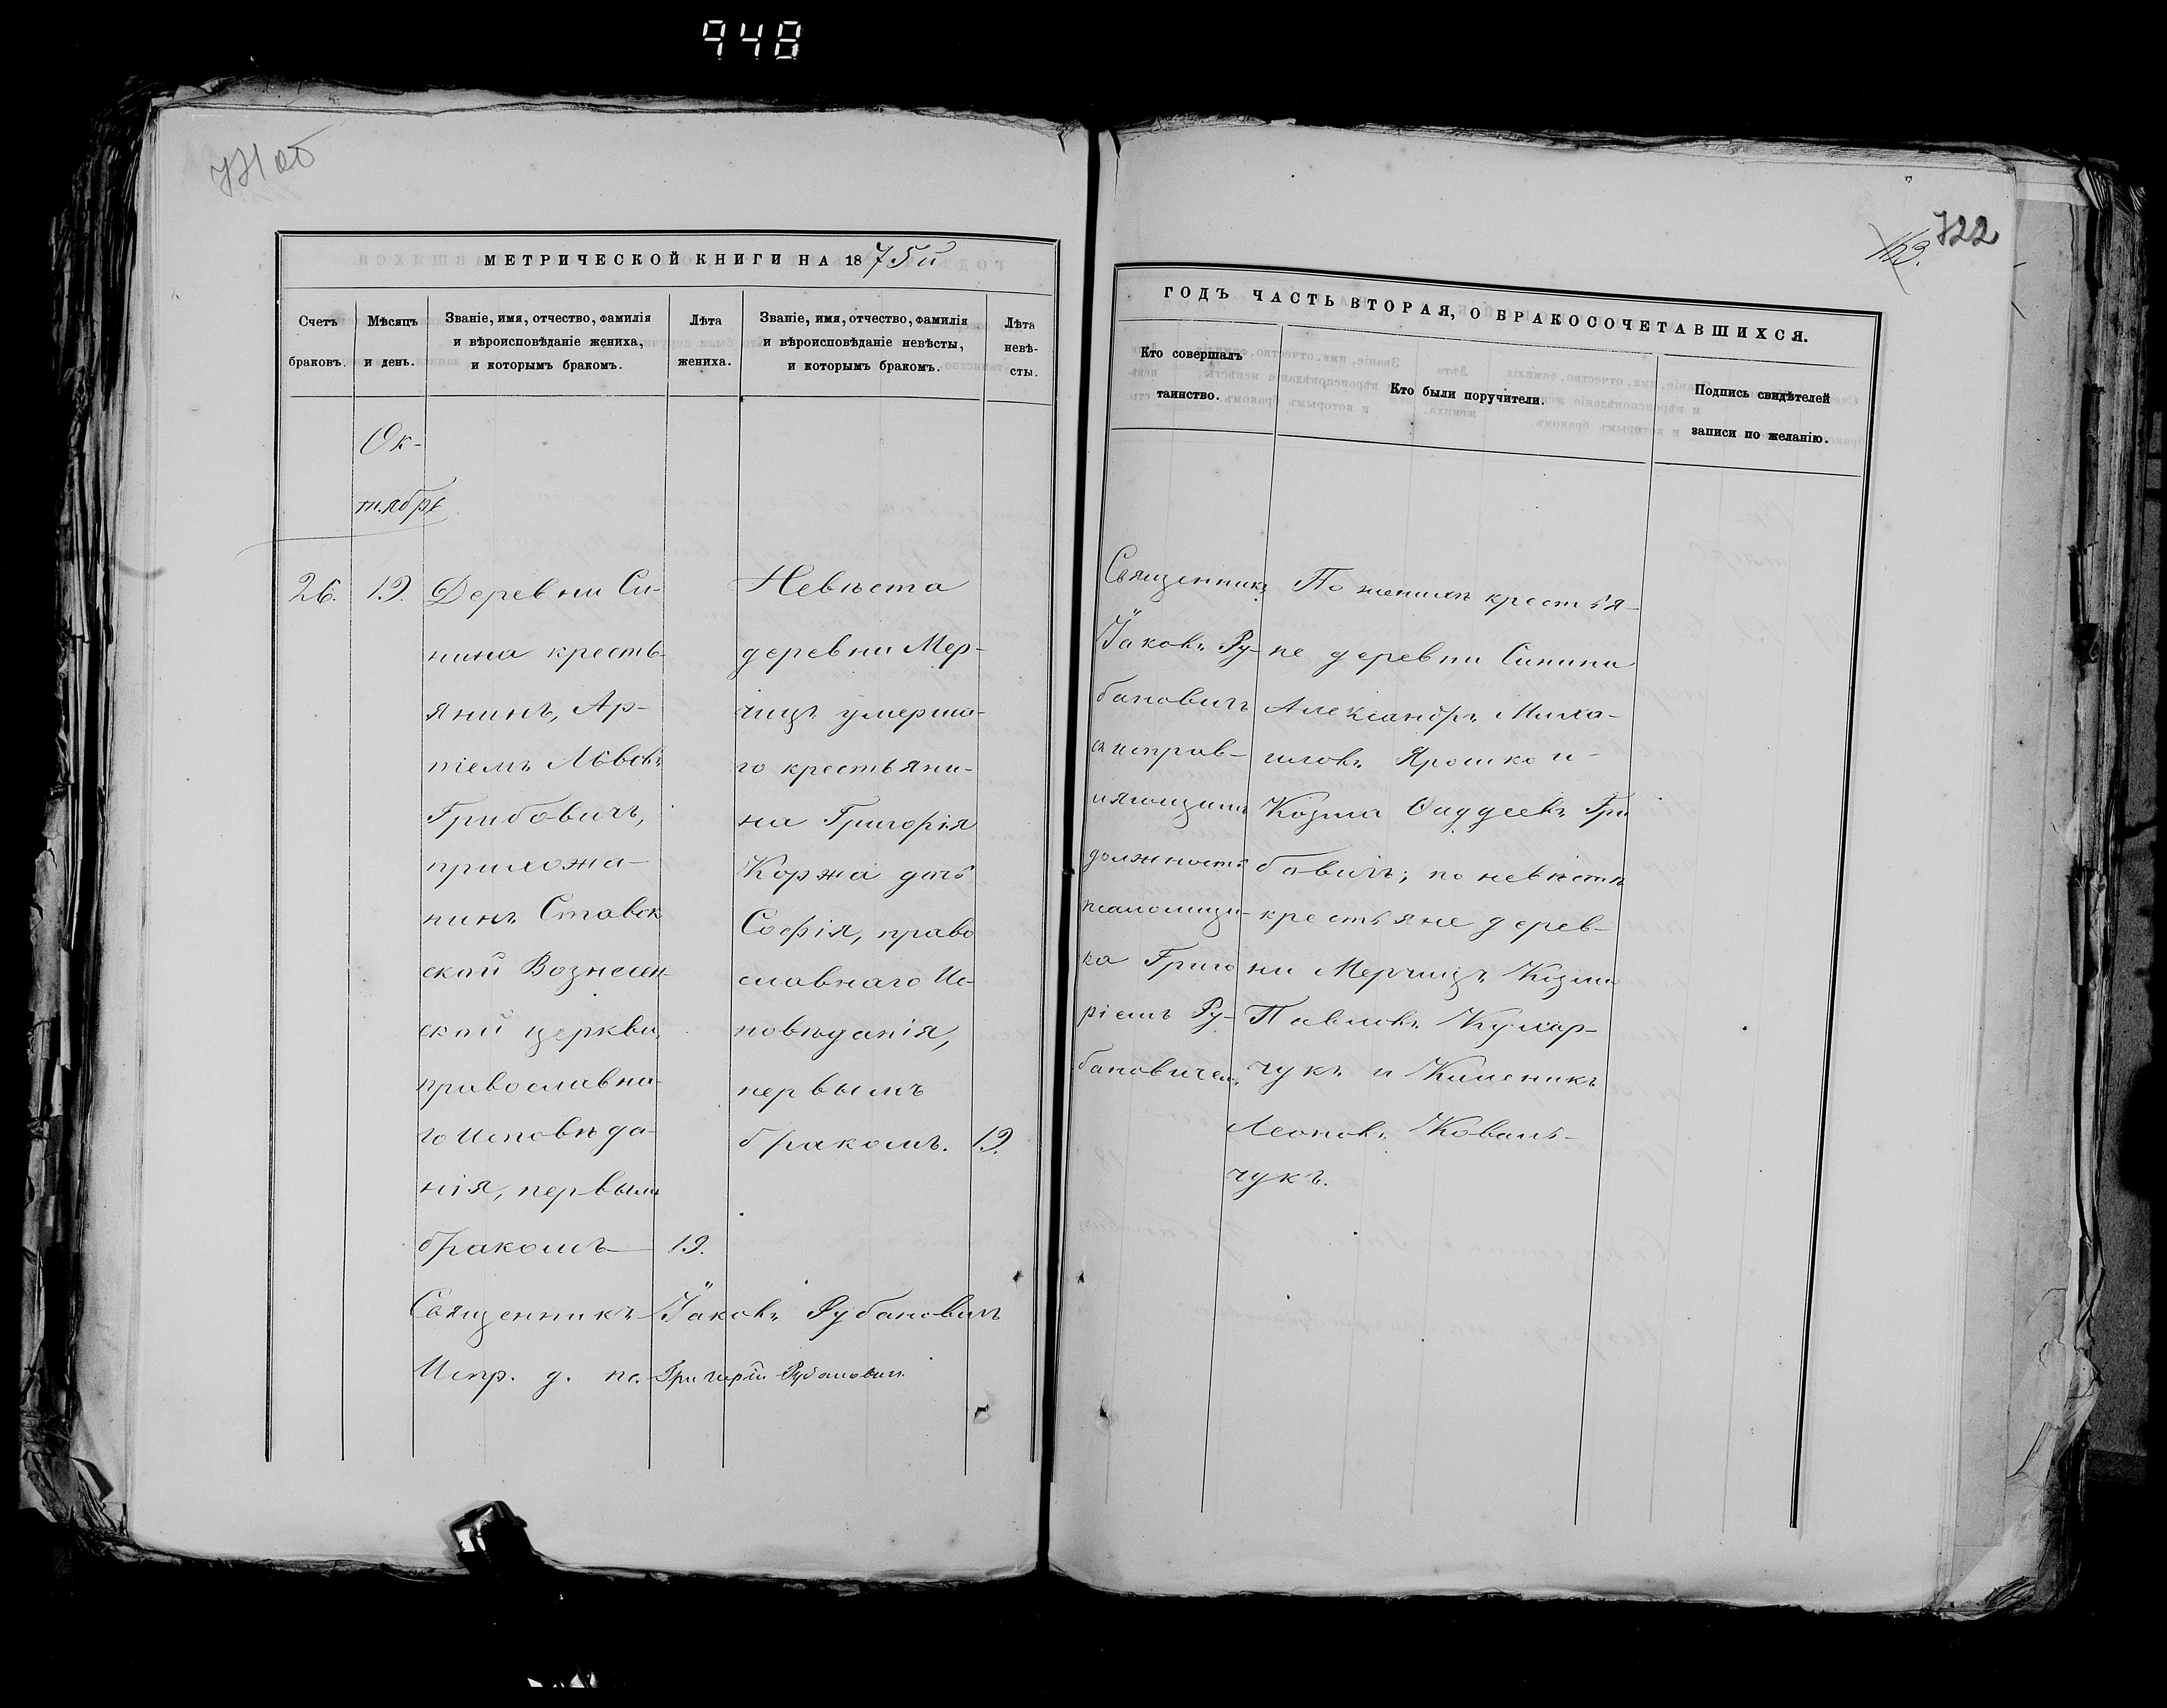 948
721 об
МЕТРИЧЕСКОЙ КНИГИ НА 1875й
Счетъ
браковъ.
Мѣсяцъ
и день.
Званіе, имя, отчество, фамилія
и вѣроисповѣданіе жениха,
и которымъ бракомъ.
Лѣта
жениха.
Званіе, имя, отчество, фамилія
и вѣроисповѣданіе невѣсты,
и которымъ бракомъ.
Лѣта
невѣ-
сты.
Ок-
тябрь
26.
19.
Деревни Си-
нина кресть-
янинъ, Ар-
темъ Львовъ
Грибовичъ,
прихожа-
нинъ Ставок
ской Вознесен-
ской церкви,
православна-
го исповѣда-
нія, первымъ
бракомъ
19.
Невѣста
деревни Мер-
чицъ умерша-
го крестьяни-
на Григорія
Коржа дочь
Софія, право
славнаго Ис-
повѣданія,
первымъ
бракомъ.
19.
Священникъ Іаковъ Рубановичъ
Испр. д. пс. Григорій Рубановичъ
722
163.
ГОДЪ ЧАСТЬ ВТОРАЯ, О БРАКОСОЧЕТАВШИХСЯ.
Кто совершалъ
таинство.
Кто были поручители.
Подпись свидѣтелей
записи по желанію.
Священникъ
Іаковъ Ру-
бановичъ
съ исправ-
ляющимъ
должность
псаломщи-
ка Григо
ріемъ Ру-
бановичемъ
По женихѣ крестья-
не деревни Синина
Александръ Миха-
иловъ Ярошко и
Козма Ѳаддеевъ Гри
бовичъ; по невѣстѣ
крестьяне дерев-
ни Мерчицъ Козма
Павловъ Кухар-
чукъ и Клименикъ
Леоновъ Коваль-
чукъ.